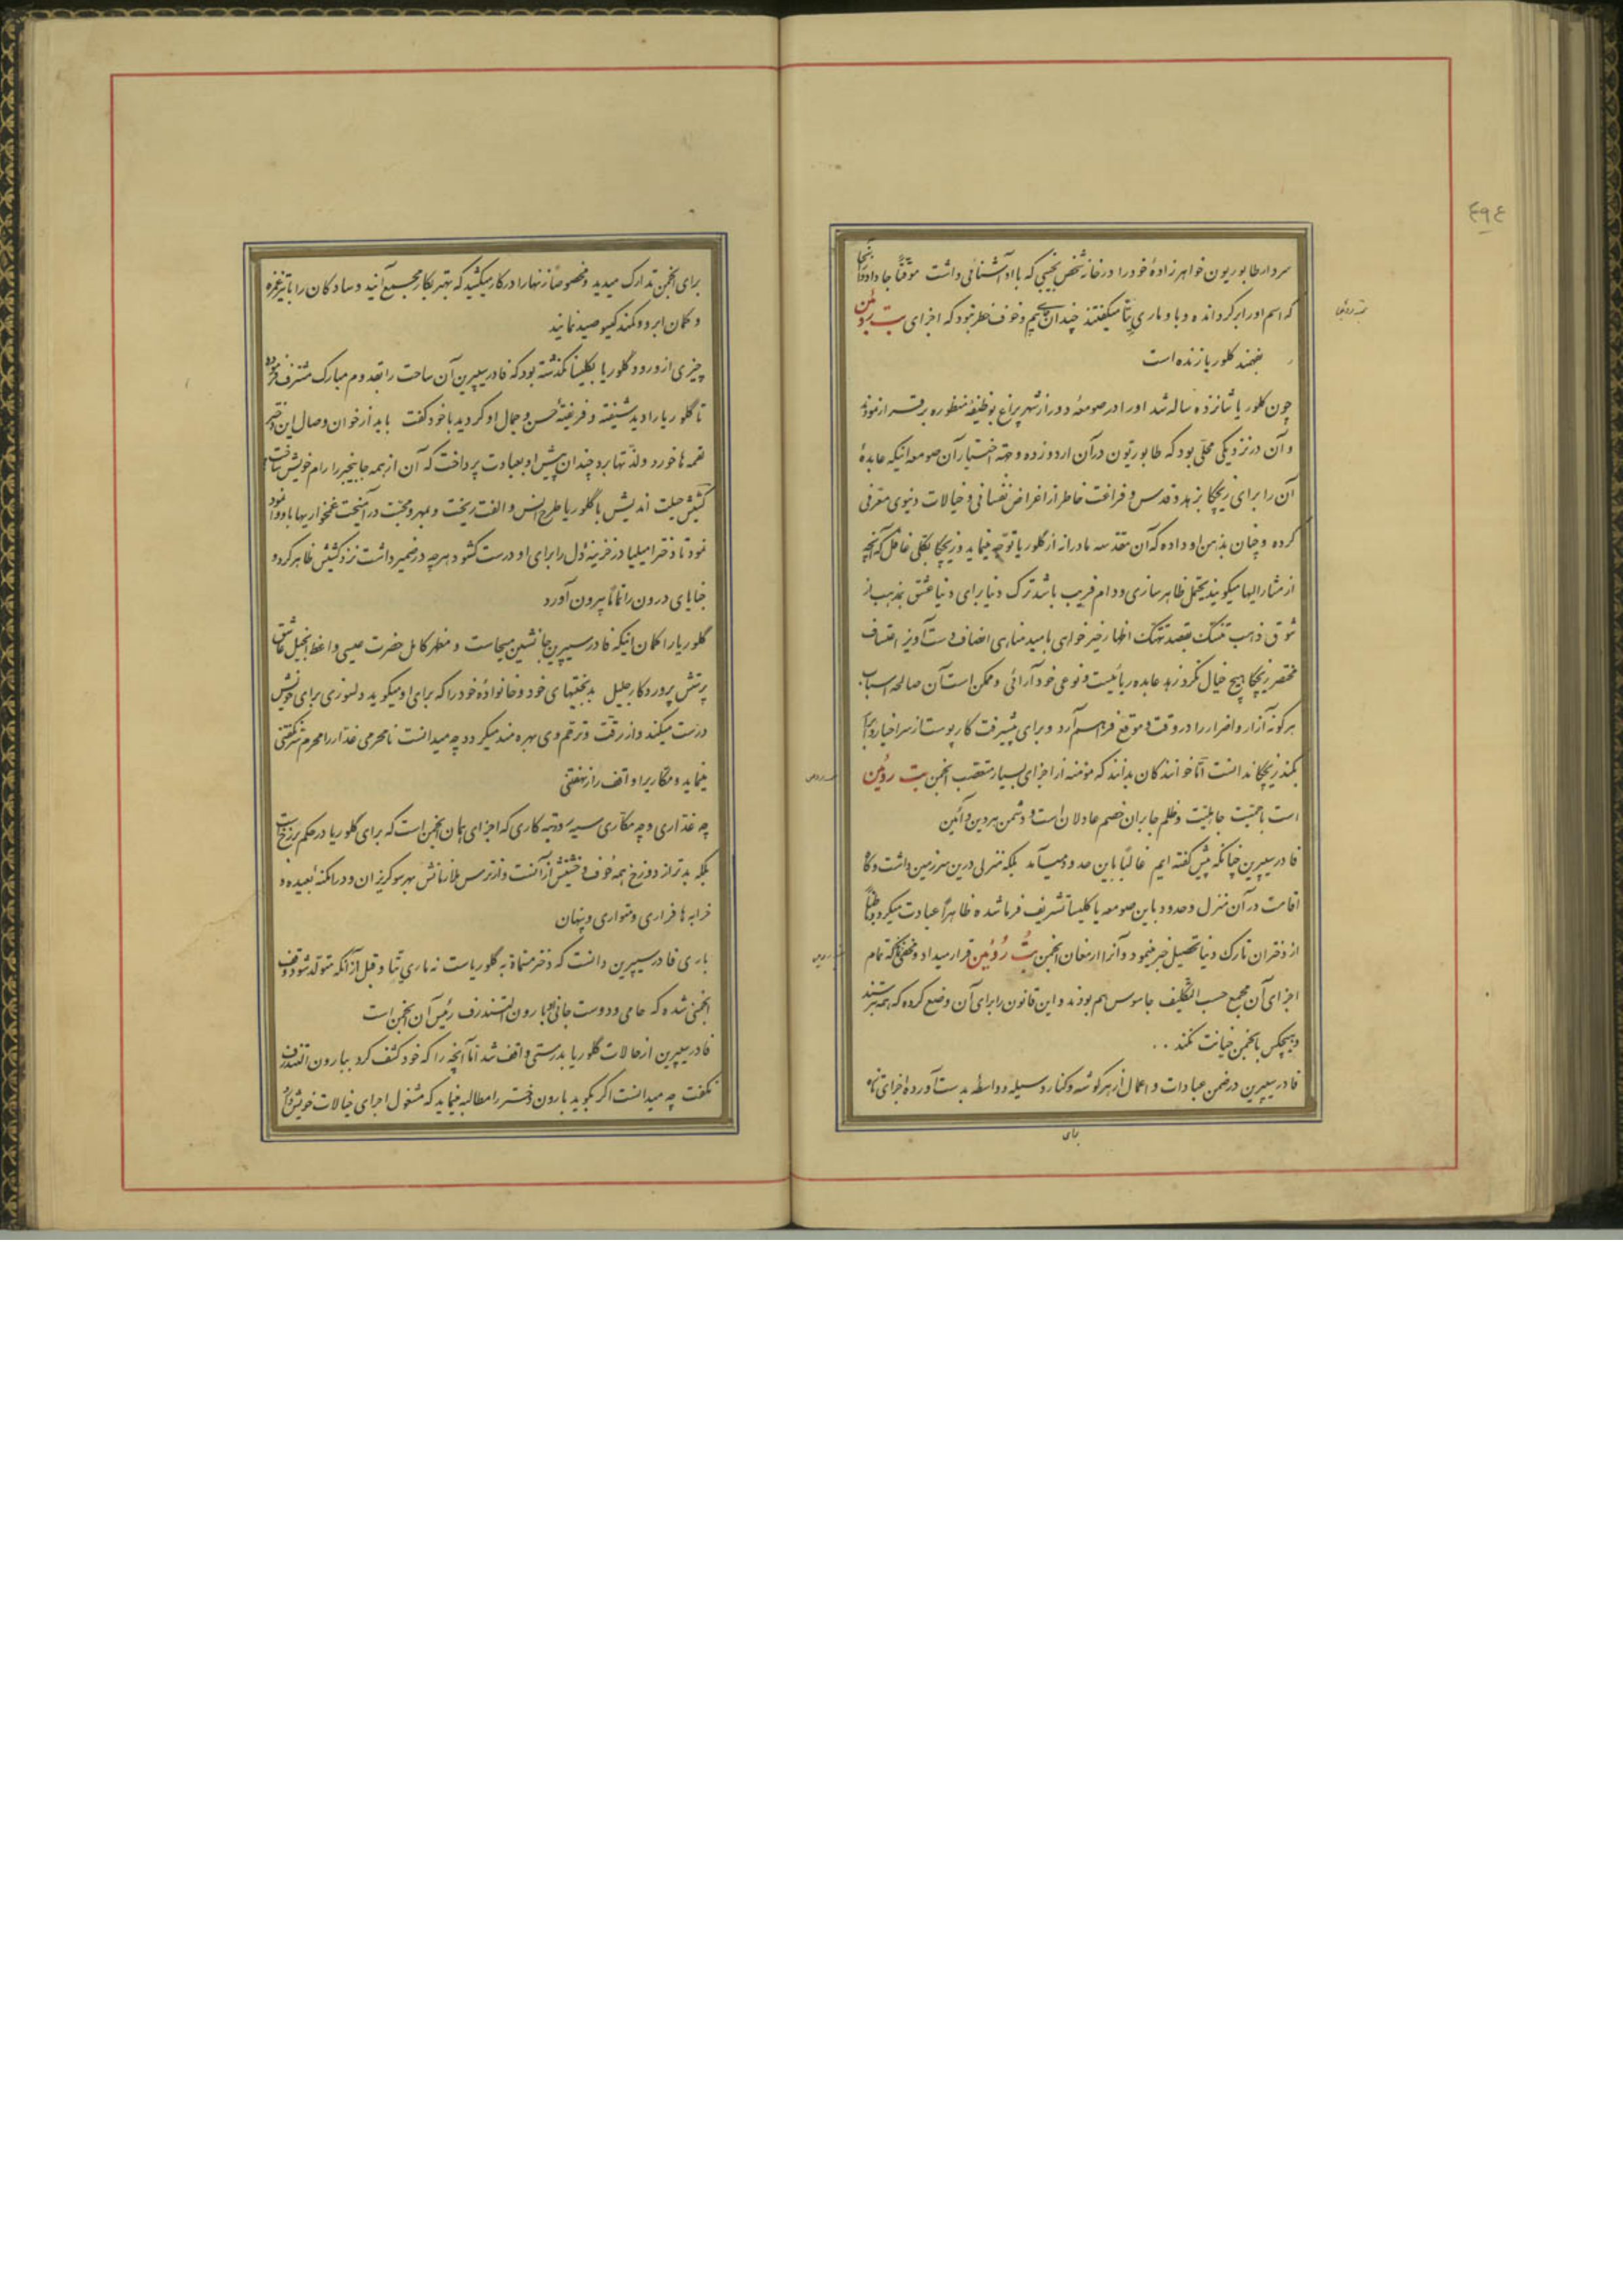 ٤٩٤
سردار طابوریون خواهرزادهٔ خود را در خانه شخص نجیبی که با او آشنائی داشت موقتاً جا داد و از آنجا
که اسم او را برگردانده و با و ماری تتا میگفتند چندان بیم و خوف خطر نبود که اجزای بت روئین
بفهمند گلوریا زنده است
چون گلوریا شانزده ساله شد او را در صومعهٔ دور از شهر پراغ بوظیفهٔ منظوره برقرار نمودند
و آن در نزدیکی محلی بود که طابوریون در آن اردو زده و جهة اختیار آن صومعه اینکه عابدهٔ
آن را برای زیچکا بزهد و قدس و فراغت خاطر از اغراض نفسانی و خیالات دنیوی معرفی
کرده و چنان بذهن او داده که آن مقدسه مادرانه از گلوریا توجه مینماید و زیچکا بکلی غافل که آنچه
از مشارالیها میگویند یحتمل ظاهرسازی و دام فریب باشد ترک دنیا برای دنیا عشق بمذهب از
شوق ذهب تنسک بقصد تهتک اظهار خیرخواهی بامید مناهی انصاف دست آویز اعتساف
مختصر زیچکا هیچ خیال نکرد زهد عابده ریائیست و نوعی خودآرائی و ممکن است آن صالحه اسباب
هرگونه آزار و اضرار را در وقت و موقع فراهم آرد و برای پیشرفت کار پوست از سر اخیار و ابرار
بکند زیچکا ندانست اما خوانندگان بدانند که مؤمنه از اجزای بسیار متعصب انجمن بت روئین
است با حمیّت جاهلیّت و ظلم جابران خصم عادلان است و دشمن هر دین و آئین
فادر سیپرین چنانکه پیش گفته ایم غالباً باین حدود میآمد بلکه منزلی درین سرزمین داشت و گاه
اقامت در آن منزل و حدود باین صومعه یا کلیسا تشریف فرما شده ظاهراً عبادت میکرد و باطناً
از دختران تارک دنیا تحصیل خبر مینمود و آنرا ارمغان انجمن بت روئین قرار میداد و مخفی نماند که تمام
اجزای آن مجمع حسب التکلیف جاسوس هم بودند و این قانون را برای آن وضع کرده که همه بترسند
و هیچکس بانجمن خیانت نکند ..
فادر سیپرین در ضمن عبادات و اعمال از هر گوشه و کنار وسیله و واسطه بدست آورده اجزای تازه
برای
برای انجمن تدارک میدید و مخصوصاً زنها را در کار میکشید که بهتر بکار مجمع آیند و سادگان را با تیر غمزه
و کمان ابرو و کمند گیسو صید نمایند
چیزی از ورود گلوریا بکلیسا نگذشته بود که فادر سیپرین آن ساحت را بقدوم مبارک مشرف فرموده
تا گلوریا را دید شیفته و فریفتهٔ حسن و جمال او گردید با خود گفت باید از خوان وصال این دختر
لقمه ها خورد و لذتها برد چندان پیش او بعبادت پرداخت که آن از همه جا بیخبر را رام خویش ساخت
کشیش حیلت اندیش با گلوریا طرح انس و الفت ریخت و بمهر و محبت در آمیخت غمخواریها با او
نمود تا دختر امیلیا در خزینهٔ دل را برای او درست گشود هرچه در ضمیر داشت نزد کشیش ظاهر کرد و
خبایای درون را تماماً بیرون آورد
گلوریا را گمان اینکه فادر سیپرین جانشین مسیحاست و مظهر کامل حضرت عیسی واعظ انجیل عاشق
پرستش پروردگار جلیل بدبختیهای خود و خانوادهٔ خود را که برای او میگوید دلسوزی برای خویش
درست میکند و از رقت و ترحم وی بهره مند میگردد چه میدانست نامحرمی غدار را محرم هر نگفتنی
مینماید و مکاریرا واقف راز نهفتنی
چه غداری و چه مکاری سیه رو و تبه کاری که اجزای همان انجمن است که برای گلوریا در حکم برزخ است
بلکه بدتر از دوزخ همه خوف و خشیتش از آنست و از ترس بلا رسانش بهر سو گریزان و در امکنهٔ بعیده و
خرابه ها فراری و متواری و پنهان
باری فادر سیپرین دانست که دختر مسماة به گلوریاست نه ماری تتا و قبل از آنکه متولد شود وقف
انجمنی شده که حامی و دوست جانی او بارون التندرف رئیس آن انجمن است
فادر سیپرین از حالات گلوریا بدرستی واقف شد اما آنچه را که خود کشف کرد ببارون التندرف
نگفت چه میدانست اگر بگوید بارون دختر را مطالبه مینماید که مشغول اجرای خیالات خویش